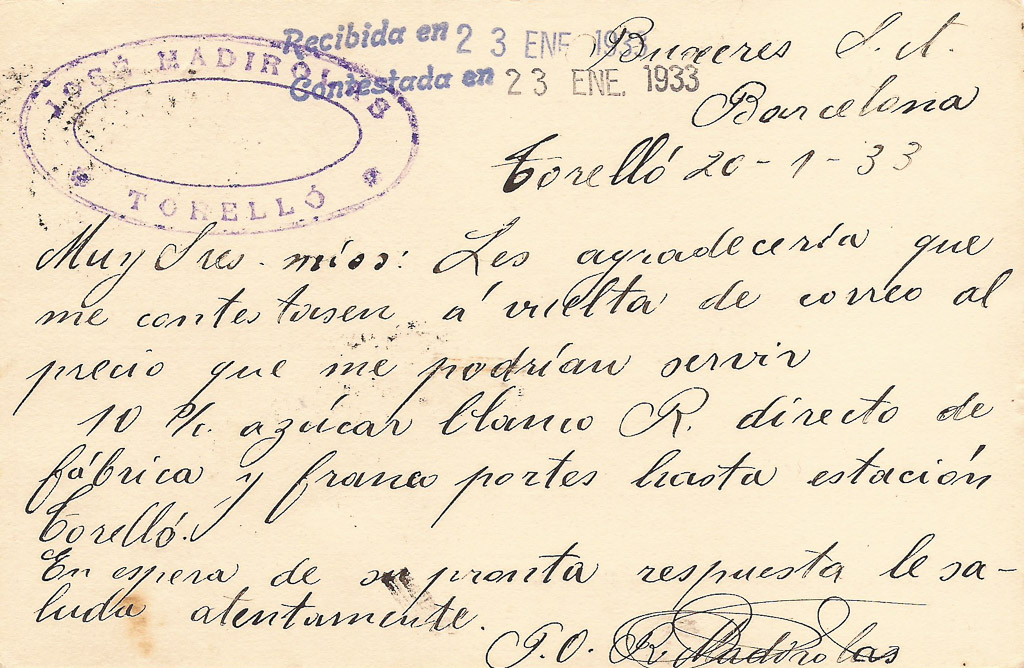 JOSÉ MADIROLAS
TORELLÓ
Recibida en 23 ENE 1933
Contestada en 23 ENE. 1933
S. A.
Barcelona
Torelló 20-1-33
Muy Sres. mios: Les agradecería que
me contestasen á vuelta de correo al
precio que me podrían servir
10 %. azúcar blanco R. directo de
fábrica y franco portes hasta estación
Torelló.
En espera de su pronta respuesta le sa-
luda atentamente.
P.O. R Madirolas